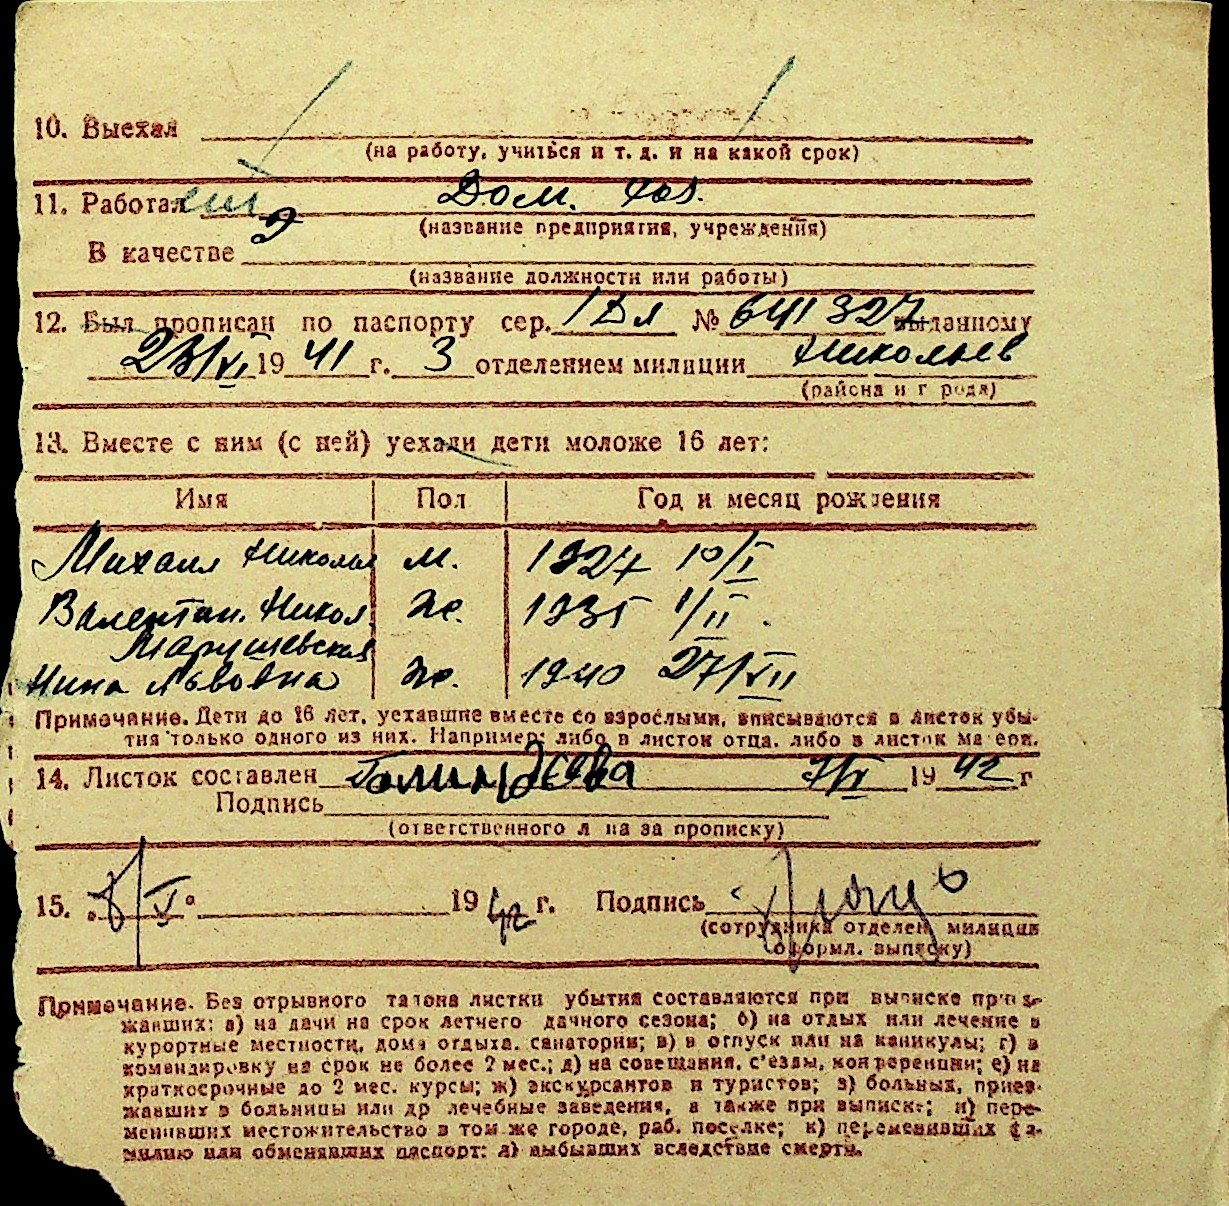 10. Выехал
(на работу, учиться и т. д. и на какой срок)
11. Работал Дом. хоз.
(название предприятия, учреждения)
В качестве
(название должности или работы)
12. Был прописан по паспорту сер. № 641327 выданному
23/VI 1941 г. 3 отделением милиции Николаев
(района и города)
13. Вместе с ним (с ней) уехали дети моложе 16 лет:
Имя Пол Год и месяц рождения
Михаил Никола м. 1927 10/I
Валентин. Никол. ж. 1935 1/II
Марушевская
Нина Львовна ж. 1940 27/VII
Примечание. Дети до 16 лет, уехавшие вместе со взрослыми, вписываются в листок убы-
тия только одного из них. Например: либо в листок отца, либо в листок матери.
14. Листок составлен 7/V 1942 г
Подпись
(ответственного лица за прописку)
15. 8/V 1942 г. Подпись
(сотрудника отделен. милиции
оформл. выписку)
Примечание. Без отрывного талона листки убытия составляются при выписке приез-
жавших: а) на дачи на срок летнего дачного сезона; б) на отдых или лечение в
курортные местности, дома отдыха, санатории; в) в отпуск или на каникулы; г) в
командировку на срок не более 2 мес.; д) на совещания, с'езды, конференции; е) на
краткосрочные до 2 мес. курсы; ж) экскурсантов и туристов; з) больных, приез-
жавших в больницы или др лечебные заведения, а также при выписке; и) пере-
менивших местожительство в том же городе, раб. поселке; к) переменивших фа-
милию или обменявших паспорт; л) выбывших вследствие смерти.